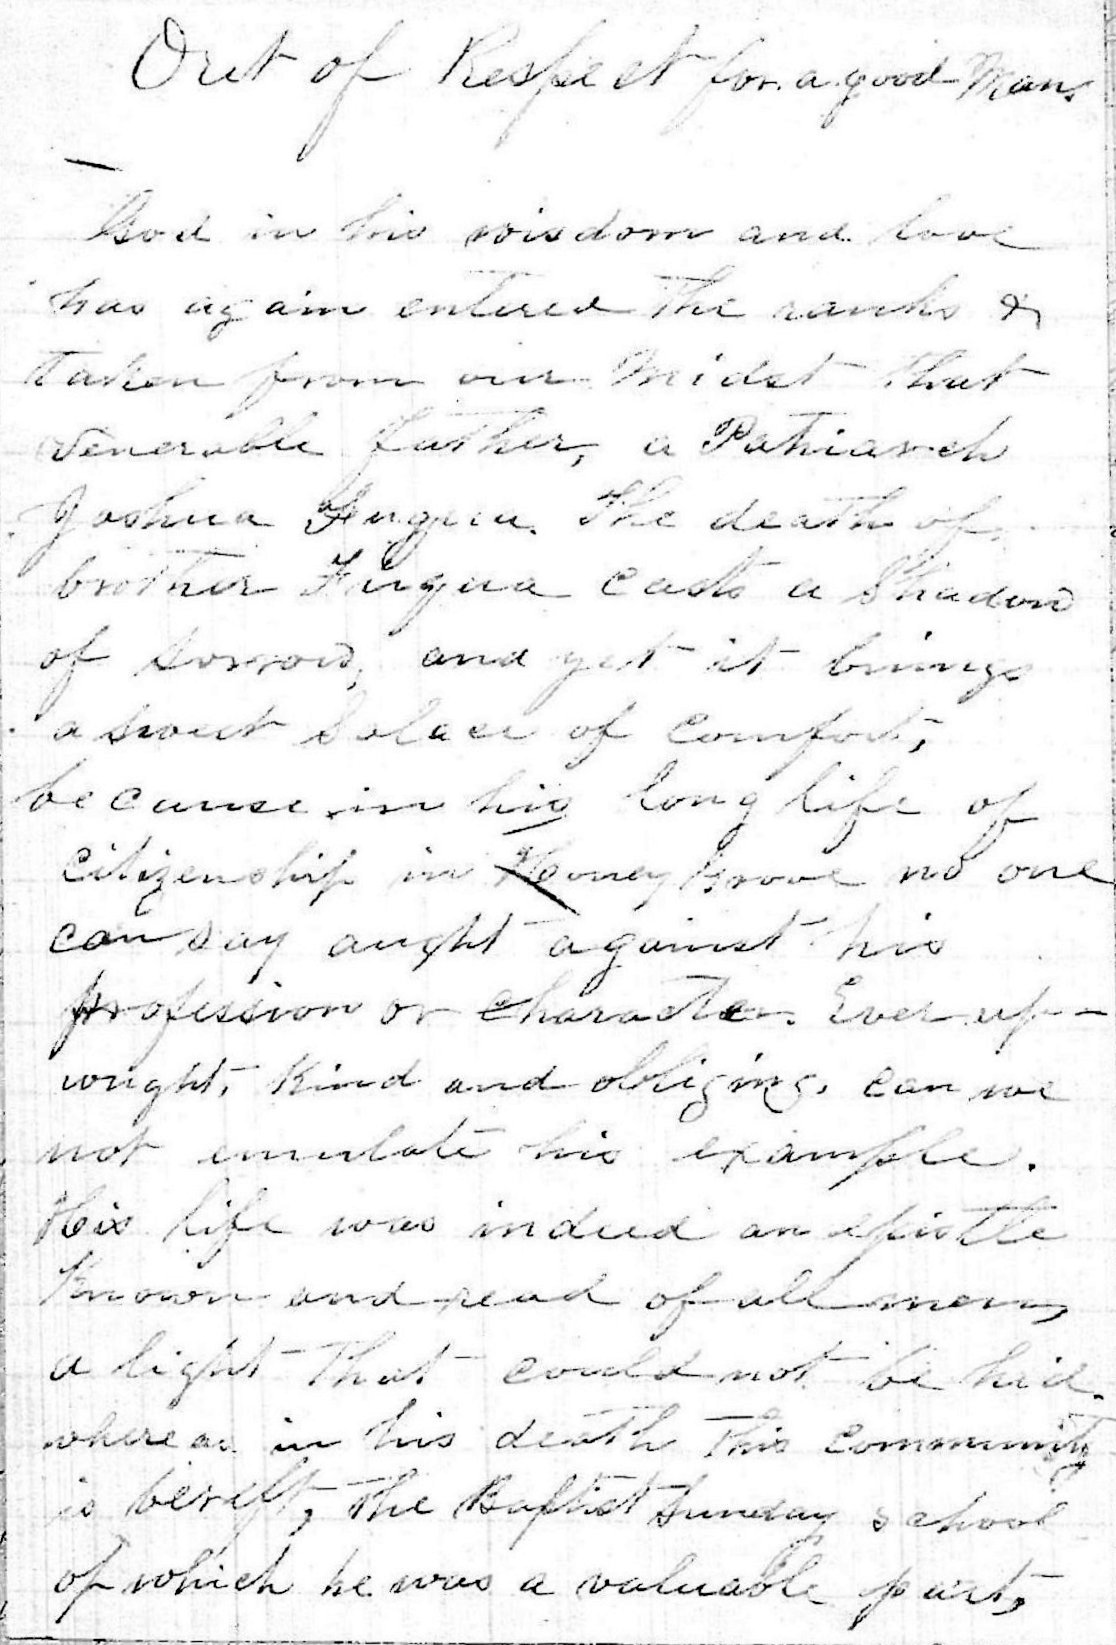 Out of Respect for a good Man.
God in his wisdom and love
has again entered the ranks &
taken from our midst that
venerable father, a Patriarch
Joshua Fuqua. The death of
brother Fuqua casts a Shadow
of sorrow, and yet it brings
a sweet Solace of Comfort,
because in his long life of
Citizenship in Honey Grove no one
can say aught against his
profession or Character. Ever up-
wright, Kind and obliging. Can we
not emulate his example.
His life was indeed an epistle
Known and read of all men,
a light that could not be hid.
whereas in his death this Community
is bereft, The Baptist Sunday school
of which he was a valuable part,